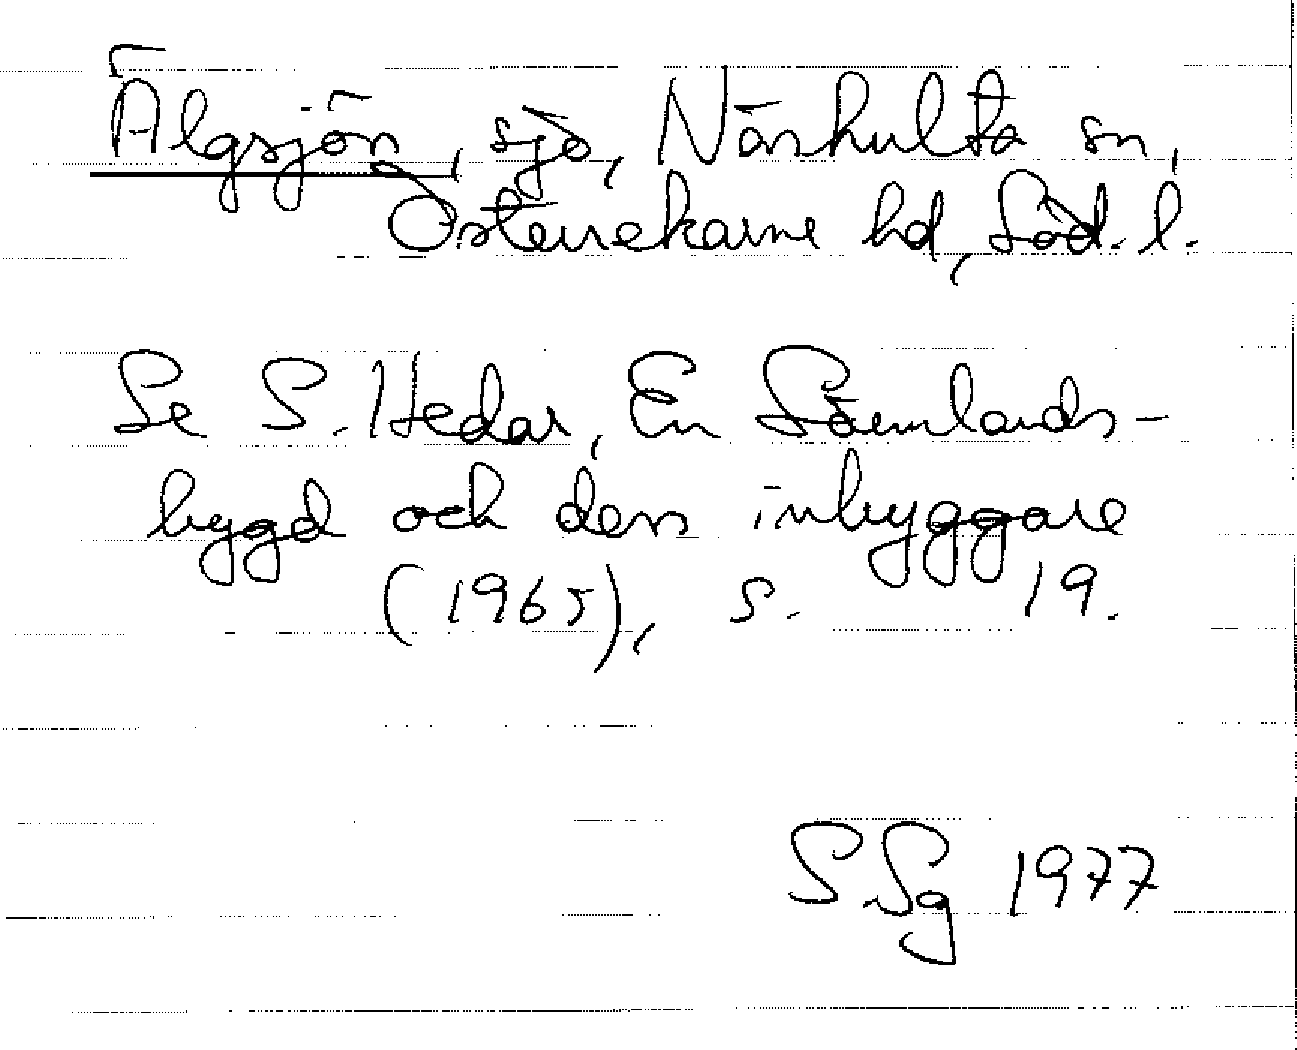 Älgsjön, sjö, Näshulta sn,
Österrekarne hd, Söd. l.
Se S. Hedar, En Sörmlands-
bygd och dess inbyggare
(1965), s. 19.
S.Sg 1977